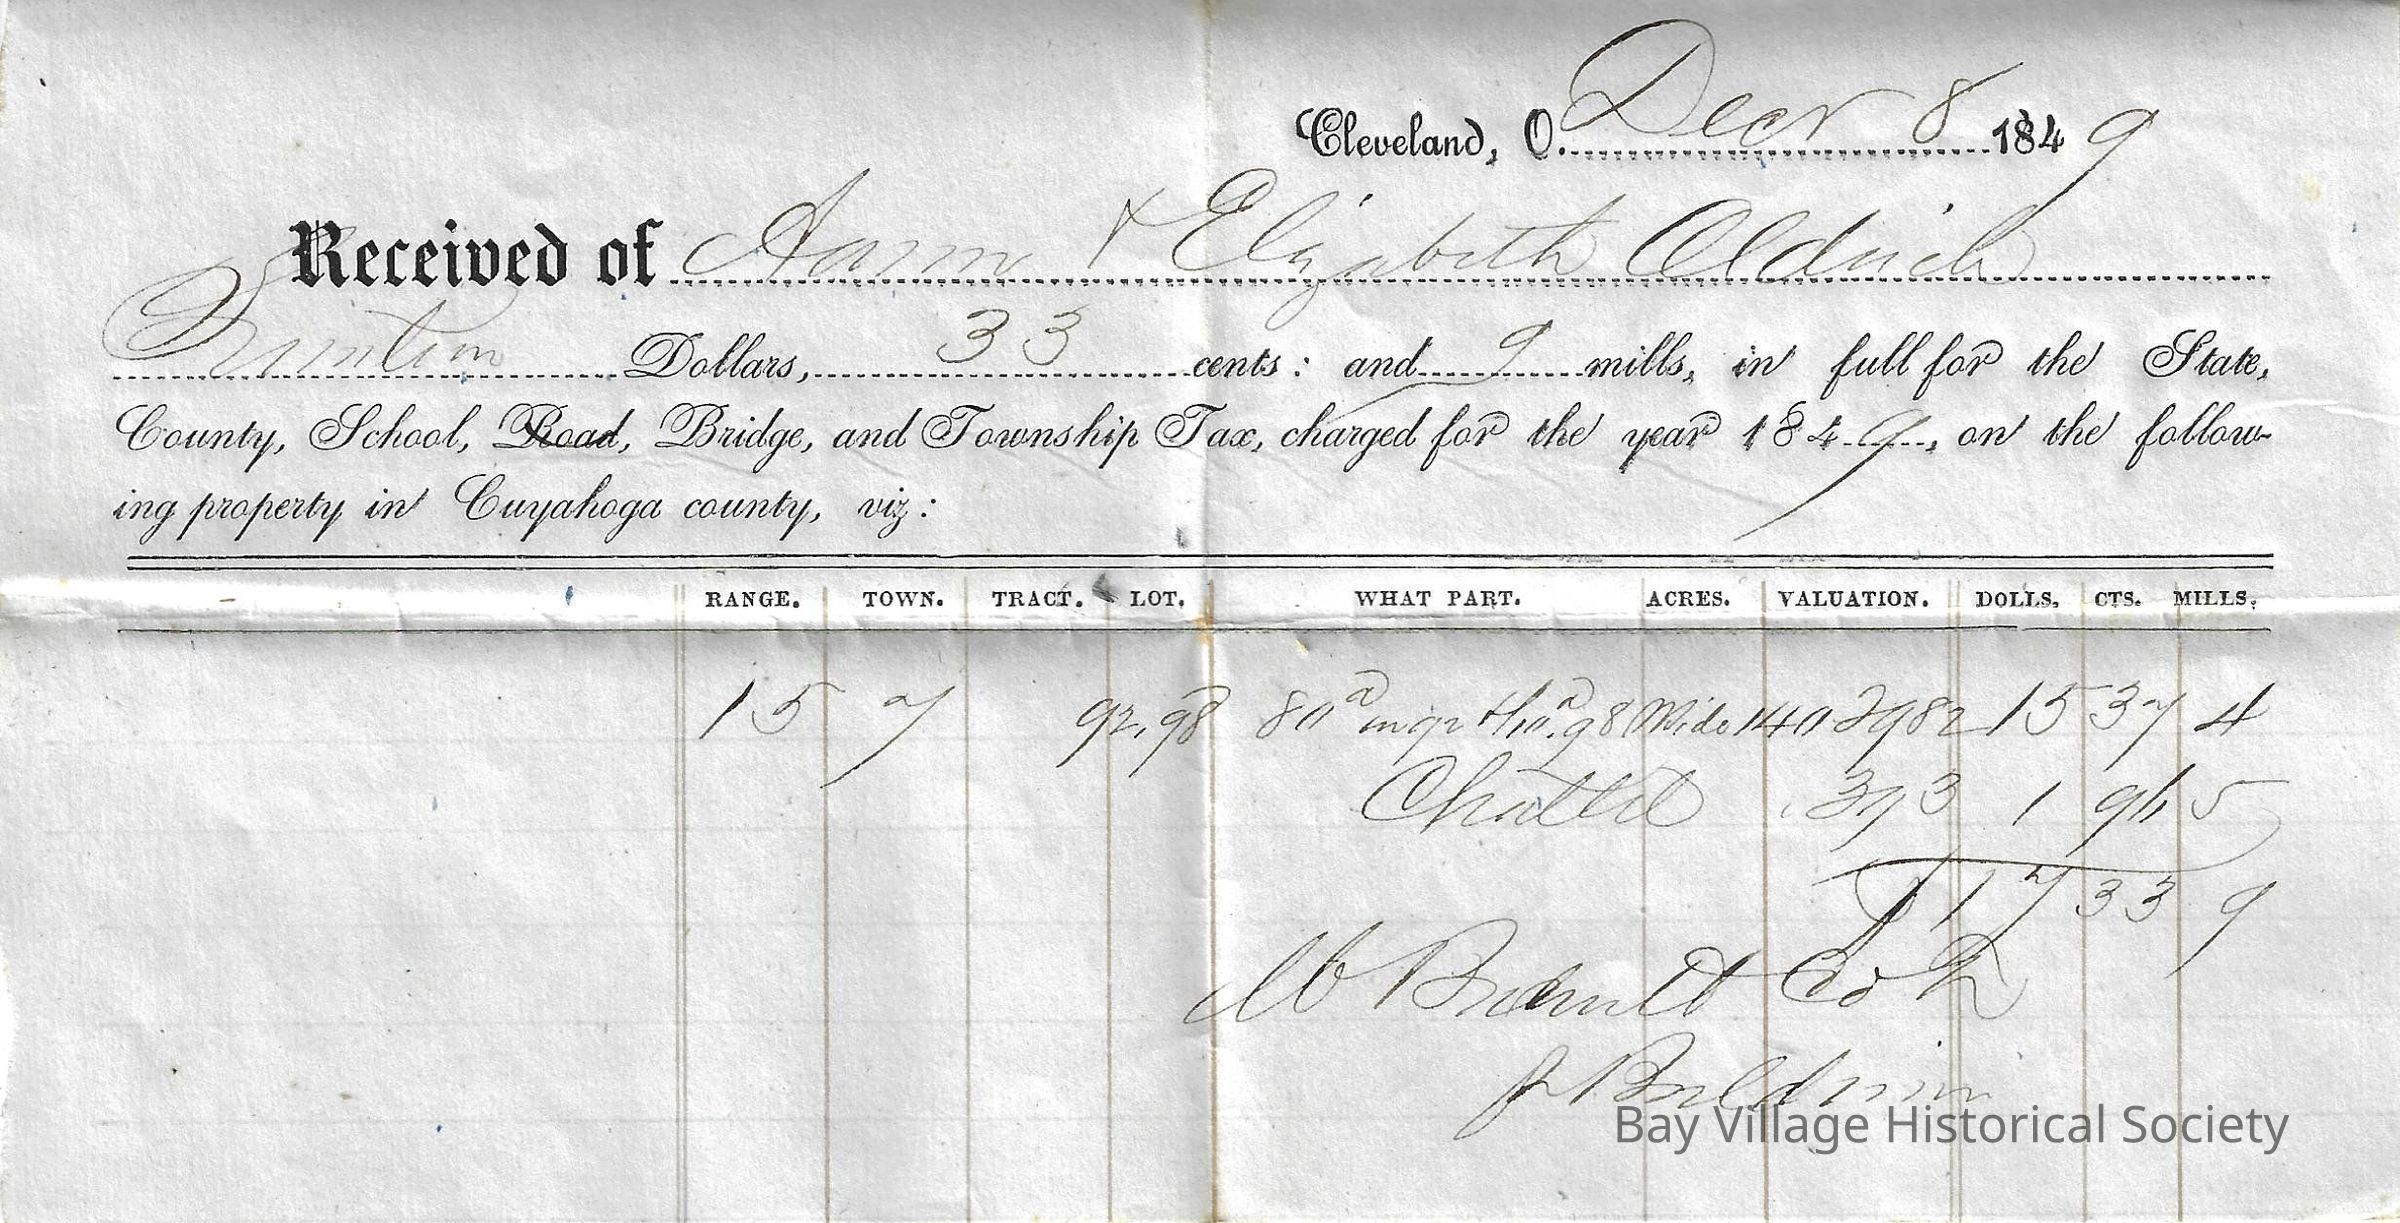 Cleveland, O. Decr 8 1849
Received of Aaron & Elizabeth Aldrich
Seventeen Dollars, 33 cents: and 9 mills, in full for the State,
County, School, Road, Bridge, and Township Tax, charged for the year 1849, on the follow-
ing property in Cuyahoga county, viz:
RANGE. TOWN. TRACT. LOT. WHAT PART. ACRES. VALUATION. DOLLS. CTS. MILLS.
15 7 92, 98 80a in 92 98 140 2982 15 37 4
Chattel 393 1 96 5
$17 33 9
Co T
Baldwin
Bay Village Historical Society